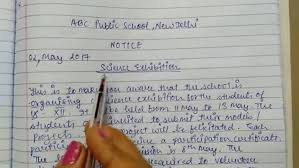 ABC Public School, New Delhi
NOTICE
02, May 2017
Science Exhibition
This is to make you aware that the school is
organising science exhibition for the students of
IX - XII. It to be held from 11 May to 15 May. The
students are invited to submit their models/
Projects. project will be felicitated. Each
participant receive a participation certificate
8th May. The
required to volunteer